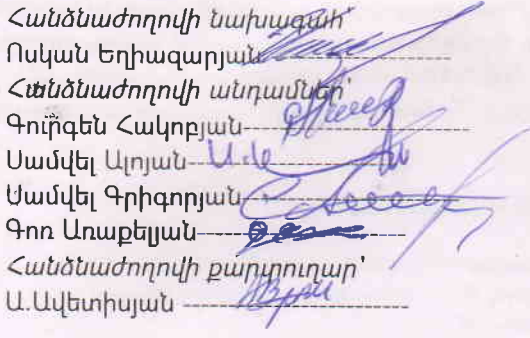 Հանձնաժողովի նախագահ՝
Ոսկան Եղիազարյան
Հանձնաժողովի անդամներ՝
Գուրգեն Հակոբյան
Սամվել Ալոյան
Սամվել Գրիգորյան
Գոռ Առաքելյան
Հանձնաժողովի քարտուղար՝
Ա.Ավետիսյան